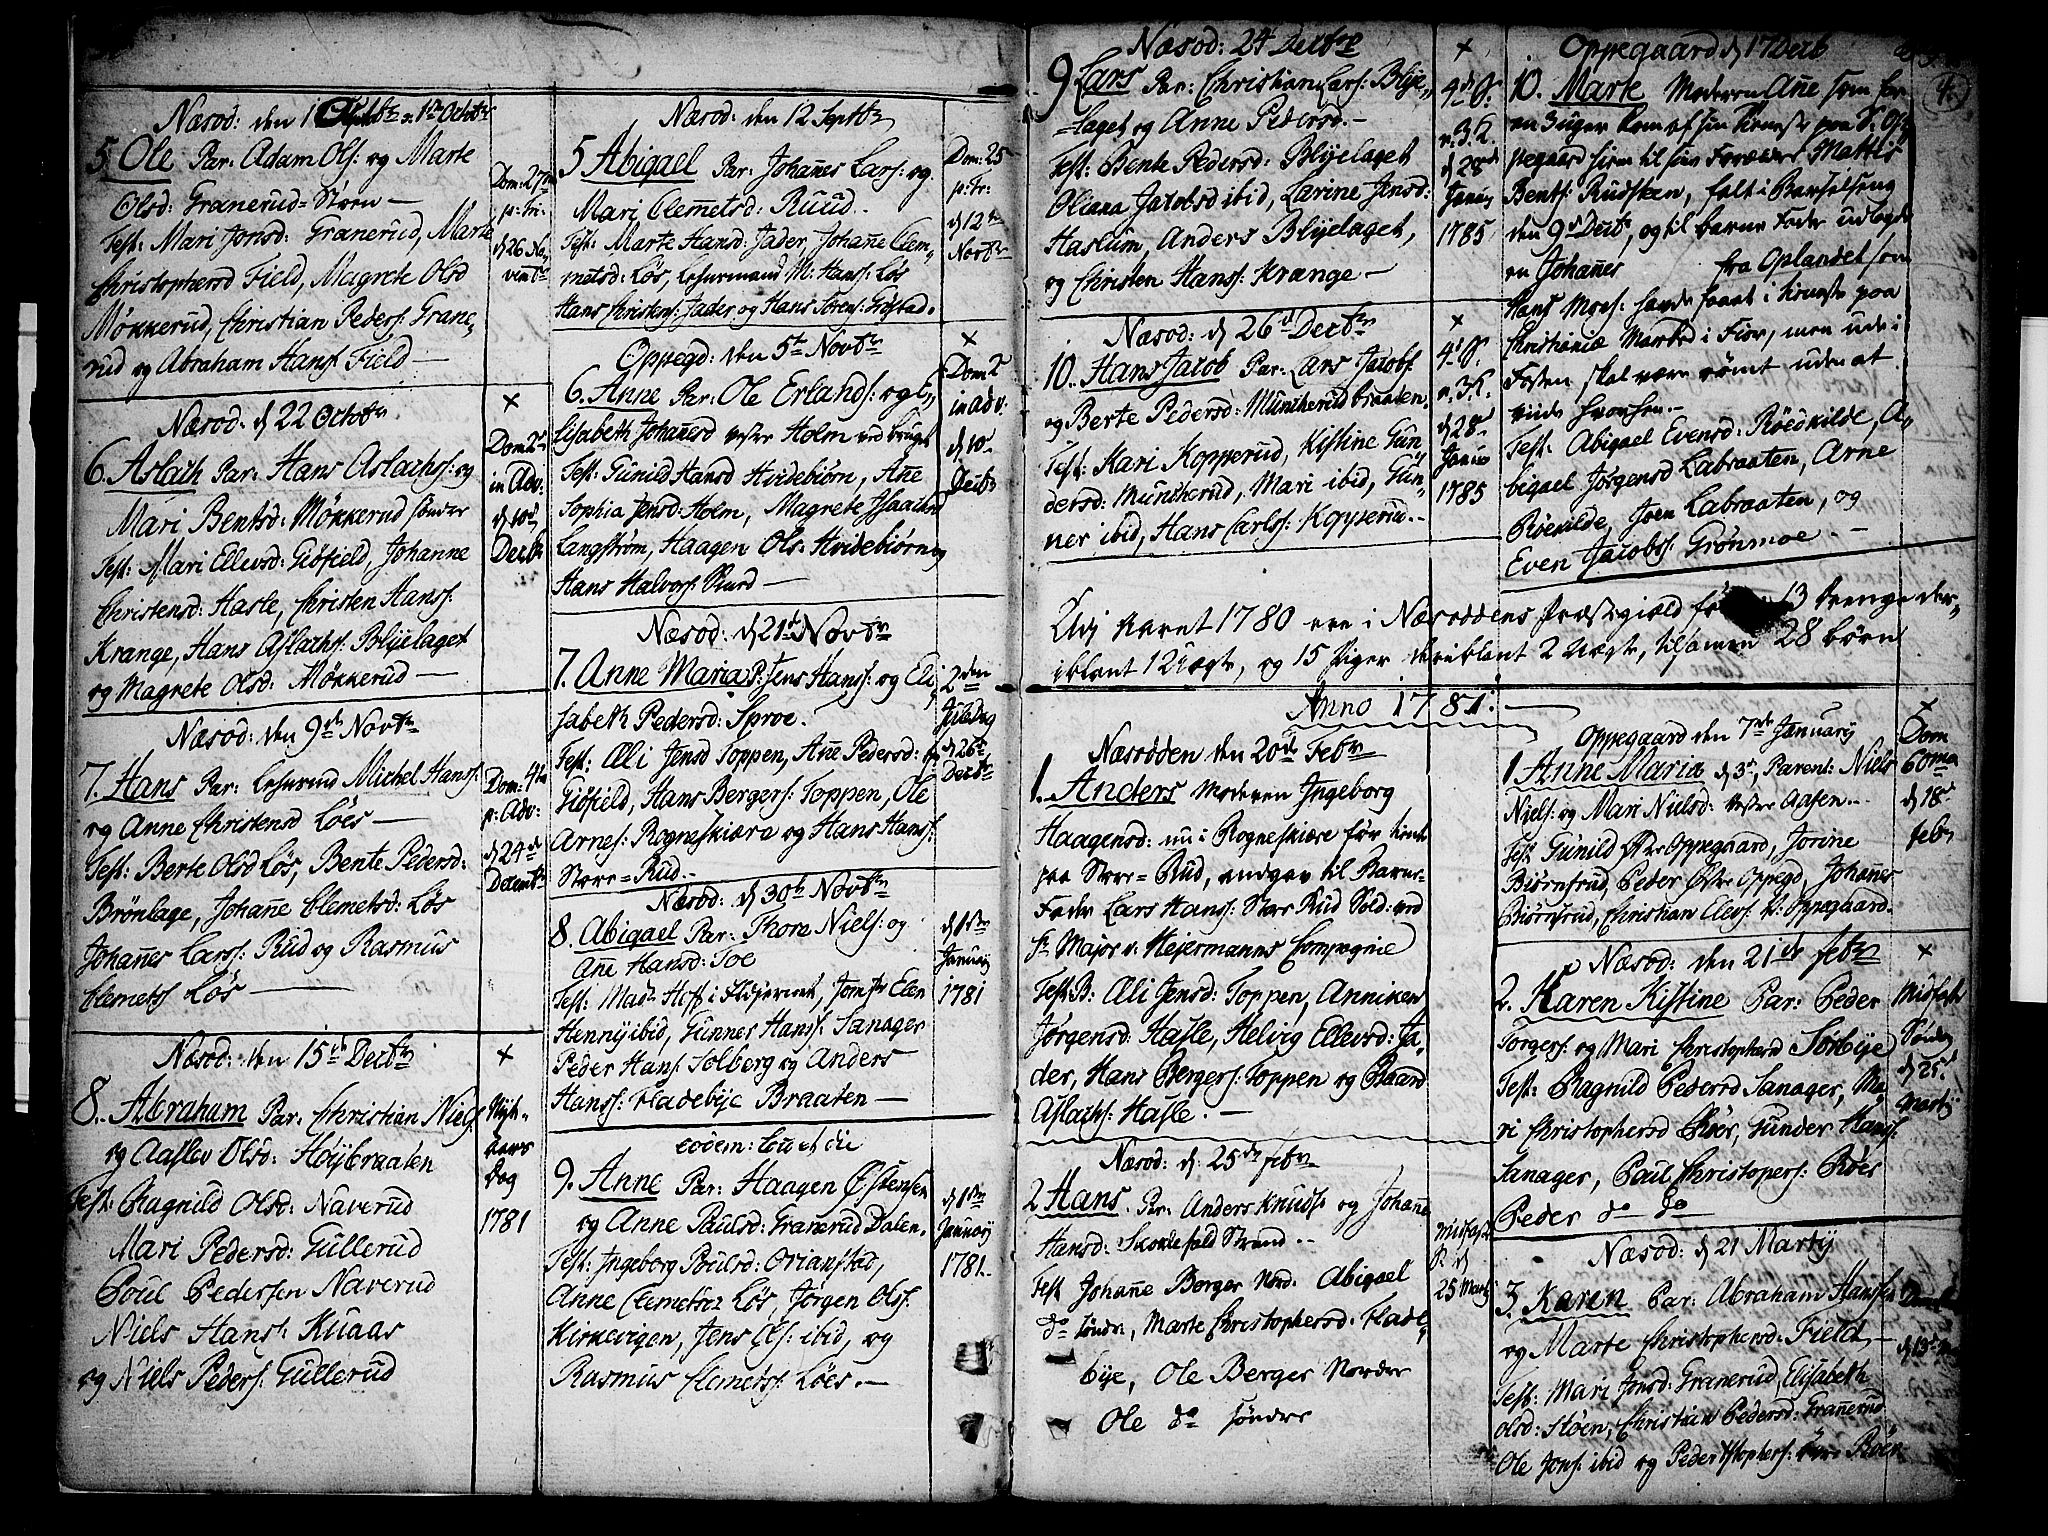 Næsod: den 1 Octobr
5. Ole Par: Adam Ols: og Marte
Olsd: Granerud-Støen —
Test: Mari Jonsd: Granerud, Marte
Christophersd Field, Magrete Olsd
Møkkerud, Christian Peders: Grane,
rud og Abraham Hans: Field —
Dom: 27
p: Tri:
d 26 No,
vembr
Næsod: d 22 Octobr
6. Aslach Par: Hans Aslachs: og
Mari Bentsd: Møkkerud søndre
Test: Mari Ellevsd: Giøfield, Johanne
Christensd: Hasle, Christen Hanss:
Krange, Hans Aslachs: Blijelaget
og Magrete Olsd: Møkkerud —
×
Dom 2
in Adv:
d 10
Decbr
Næsod: den 9de Novbr
7. Hans Par: Michel Hanss:
og Anne Christensd Løes —
Test: Berte Olsd Løs, Bente Pedersd:
Brønlage, Johañe Clemetsd: Løs
Johañes Larss: Rud og Rasmus
Clemets Løs —
Dom: 4
p: Adv:
d 24
Decembr
Næsod: den 15de Decbr
8. Abraham Par: Christian Niels
og Aaslev Olsd: Høijbraaten
Test: Ragnild Olsd: Naverud
Mari Pedersd: Gullerud
Poul Pedersen Naverud
Niels Hans: Knaas
og Niels Peders: Gullerud
×
Nyt-
aars
Dag
1781
Næsod: den 12 Septbr
5 Abigael Par: Johañes Lars: og
Mari Clemetsd: Ruud.
Test: Marte Hansd: Jader, Johañe Clem,
metsd: Løs, M: Hans: Løs
Hans Christens: Jader og Hans Sørens:
Dom: 25
p: Tr:
d 12
Novbr
Oppegd: den 5te Novbr
6. Anne Par: Ole Erlands: og E,
lisabeth Johañesd vestre Holm ved bruget
Test: Gunild Hansd Hvidebiørn, Añe
Sophia Jensd: Holm, Magrete Isaachsd
Langstrøm, Haagen Ols: Hvidebiørn og
Hans Halvors: —
×
Dom 2
in adv:
d 10
Decbr
Næsod: d 21 Novbr
7. Anne Maria P: Jens Hans: og Eli,
sabeth Pedersd: Sproe.
Test: Æli Jensd Toppen, Añe Pedersd:
Giøfield, Hans Bergers: Toppen, Ole
Arnes: Rogneskiære og Hans Hans:
Store-Rud..
2den
Juledag
d 26
Decbr
Næsod: d 30te Novbr
8. Abigael Par: Thore Niels: og
Añe Hansd: Toe
Test: Mad: Hoff i , Jomfr Elen
Henny ibid, Gunner Hans: Sanager
Peder Hans: Solberg og Anders
Hanss: Fladebije Braaten —
d 1ste
Januarij
1781
eodem: loco et die
9. Anne Par: Haagen Østensen
og Anne Paulsd: Granerud Dalen.
Test: Ingeborg Poulsd: Orianstad,
Anne Clemetsd Løs, Jørgen Olss:
Kirkevigen, Jens Ols: ibid, og
Rasmus Clemets: Løes. —
d 1ste
Januarij
1781.
Næsod: 24 Decbr
9 Lars Par: Christian Lars: Blije,
laget og Anne Pedersd. —
Test: Bente Pedersd: Blijelaget
Oliana Jacobsd ibid, Larine Jensd:
Haslum, Anders Blijelaget,
og Christen Hans: Krænge —
×
4de S.
d 28
Janu
1785
Næsod: d 26de Decbr
10.. Hans Jacob Par: Lars Jacobs
og Berte Pedersd: Muncherud braaten.
Test: Kari Kopperud, Kistine Gun
dersd: Muncherud, Mari ibid, Gun,
ner ibid, Hans Carls: Kopperud..
×
4de S.
d 28
Janu
1785
Oppegaard d 17 Decb
4.
10. Marte Moderen Añe som for
en 3 uger kom af sin tieneste paa
pegaard hiem til sin Forældre Mattis
Bents: Rudsken, falt i Barselseng
den 9de Decbr, og til barne Fader udlagde
en Johañes fra Oplandet som
Hans Moes: havde faaet i tieneste paa
Christianiæ Marked i Fior, men ude i
Fosten skal være rømt uden at
vide hvorhen. —
Test: Abigael Evensd: Røedkilde, A,
bigael Jørgensd Labraaten, Arne
Røekilde, Joen Labraaten, og
Even Jacobs: Grønmoe. —
Udj Aaret 1780 ere i Næsoddens Præstegield 13 drenge der,
iblant 1 Uægte, og 15 Piger deriblant 2 Uægte, tilsamen 28 børn
Anno 1781: —
Næsodden den 20de Febr
1. Anders Moderen Ingeborg
Haagensd: nu i Rogneskiære før tient
paa Store-Rud, angav til Barne-
Fader Lars Hans: Store Rud Sold: ved
Hr Major v. Hejermanns Compagnie
Test B: Æli Jensd: Toppen, Anniken
Jørgensd: Hasle, Helvig Ellevsd: Ja,
der, Hans Bergers: Toppen og Baard
Aslachs: Hasle. —
Næsod: d: 25de Febr
2 Hans. Par: Anders Knuds: og Johañe
Hansd: Skoklefald Strand..
Test Johañe Berger Nord: Abigael
do søndr:, Marte Christophersd: Flade,
bije, Ole Berger Nordre
Ole do søndre
Midfaste
25 Martij
Oppegaard den 7de Januarij
1 Anne Maria d 3die, Parent: Niels
Niels: og Mari Nielsd: vestre Aasen..
Test: Gunild Østre Oppegaard, Jorine
Biørnsrud, Peder Østre Oppegd, Johañes
Biørnsrud, Christian Elevs: v: Oppegaard.
×
Dom
60ma
d 18
Febr
Næsod: den 21de Febr
2. Karen Kistine Par: Peder
Torgers: og Mari Christophersd Sørbije
Test: Ragnild Pedersd Sanager, Ma,
ri Christophersd Røer, Gunder Hans:
Sanager, Poul Christopers: Røer
Peder do do
×
Midfaste
Søndag
d 25
Martij
Næsod: d 21 Martij
3. Karen Par: Abraham Hanssen
og Marte Christophersd: Field —
Test: Mari Jonsd: Granerud, Elisabeth
Olsd: Støen, Christian Pedersd: Granerud
Ole Jons: ibid og Peder Christophers: Røer